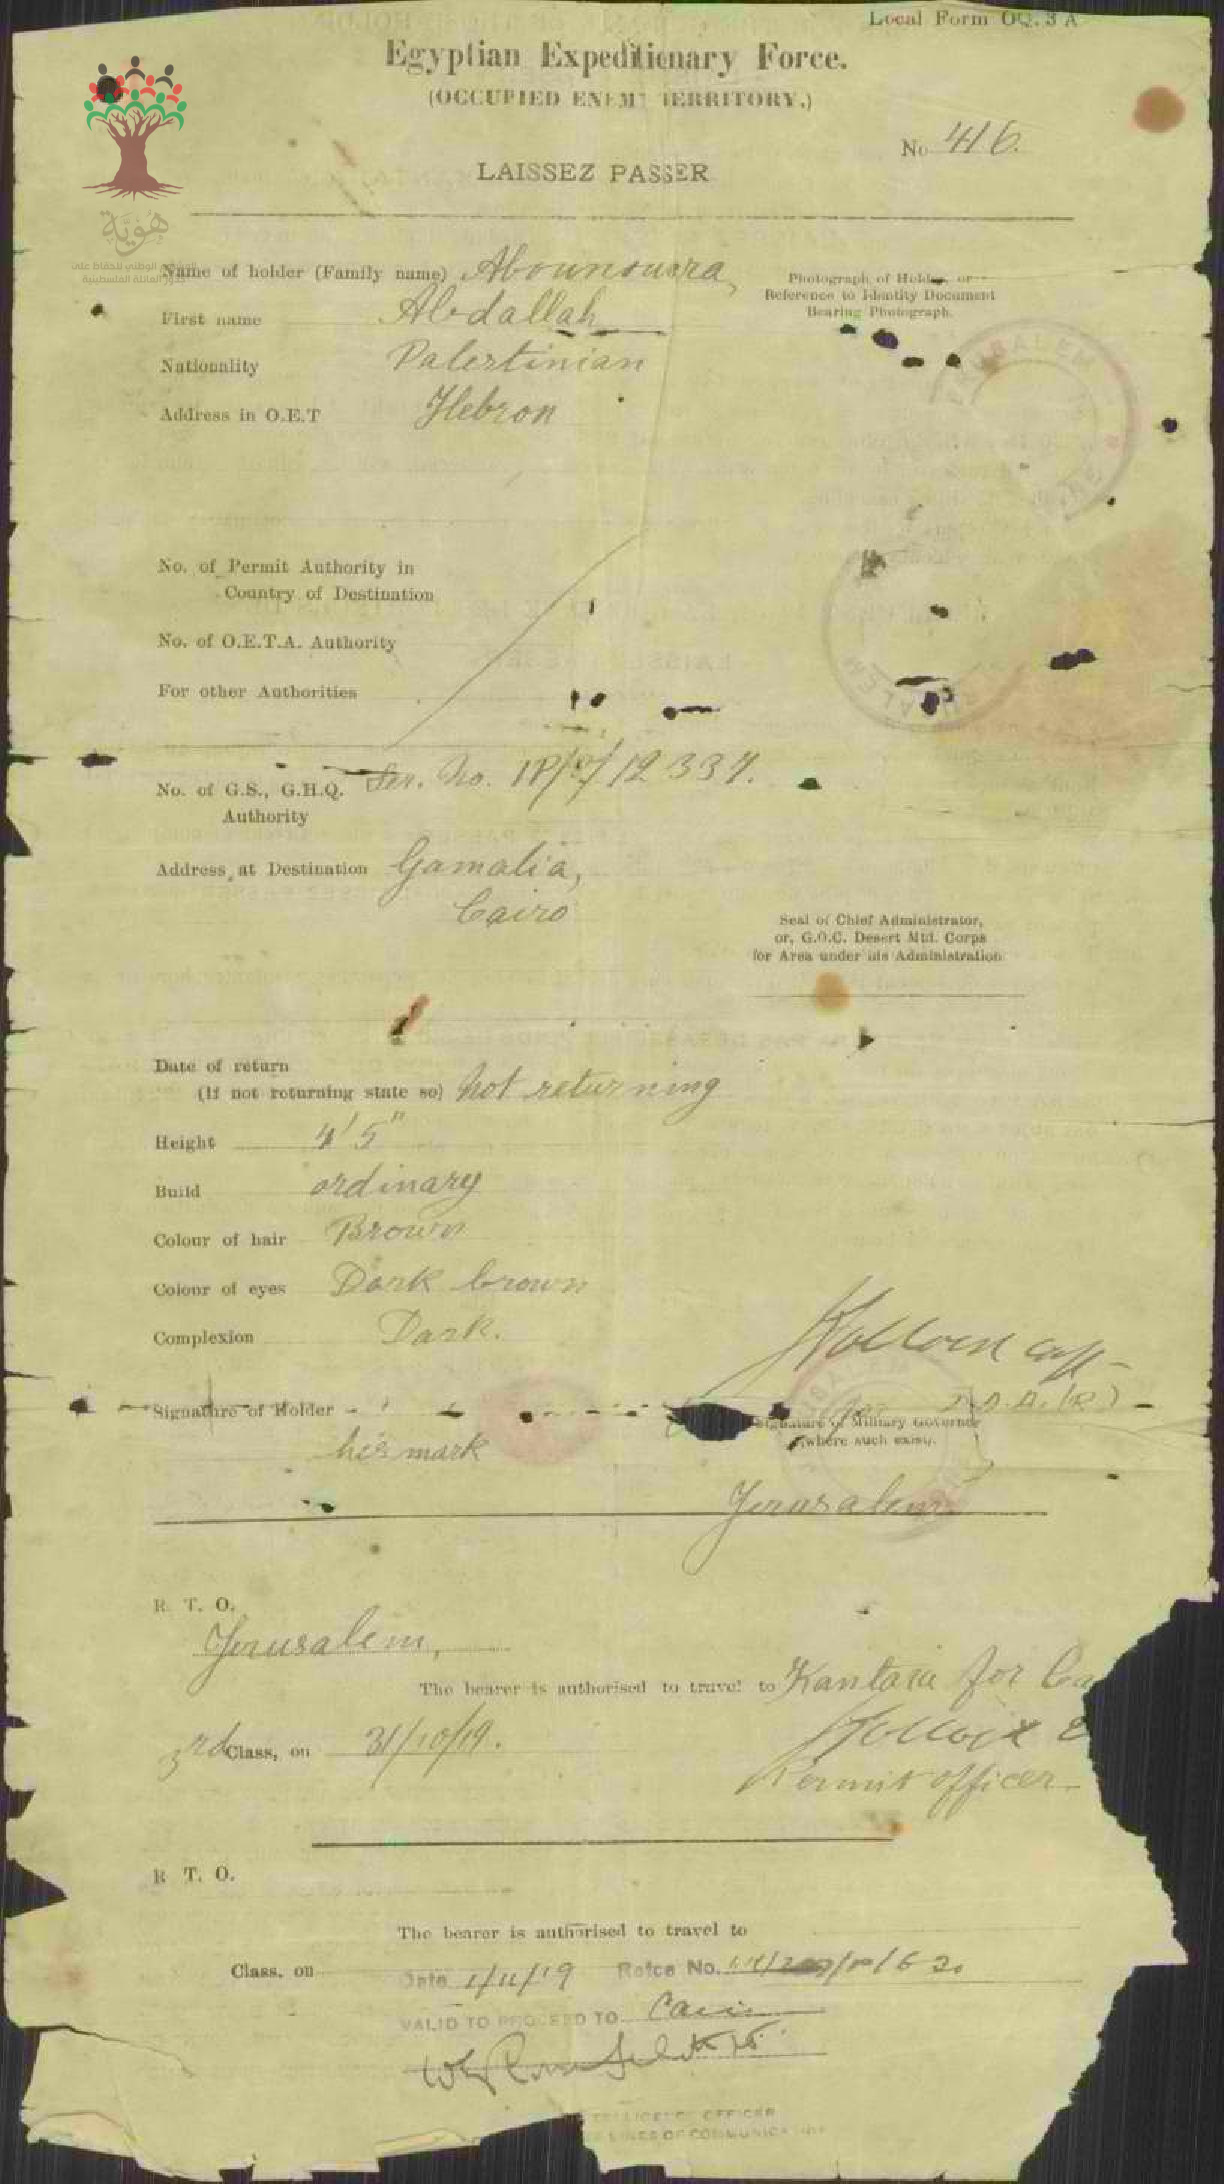 Local Form OQ. 3 A
Egyptian Expeditionary Force.
(OCCUPIED ENEMY TERRITORY.)
No 416.
LAISSEZ PASSER
هَوِيَّة
Name of holder (Family name) Abounsura,
First name Abdallah
Nationality Palestinian
Address in O.E.T Hebron
Photograph of Holder, or
Reference to Identity Document
Bearing Photograph.
JERUSALEM
No. of Permit Authority in
Country of Destination
No. of O.E.T.A. Authority
For other Authorities
No. of G.S., G.H.Q. Ser. No. 1P/ /12337.
Authority
Address at Destination Gamalia,
Cairo
Seal of Chief Administrator,
or, G.O.C. Desert Mtd. Corps
for Area under his Administration
Date of return
(If not returning state so) not returning
Height 4'5"
Build ordinary
Colour of hair Brown
Colour of eyes Dark brown
Complexion Dark.
Signature of Holder
his mark
Signature of Military Governor
(where such exist).
Jerusalem
R. T. O.
Jerusalem,
The bearer is authorised to travel to Kantara for Ca
3rd Class, on 31/10/19.
Permit officer
R. T. O.
The bearer is authorised to travel to
Class, on
Date 1/11/19 Refce No.
VALID TO PROCEED TO Cairo
INTELLIGENCE OFFICER
LINES OF COMMUNICATION